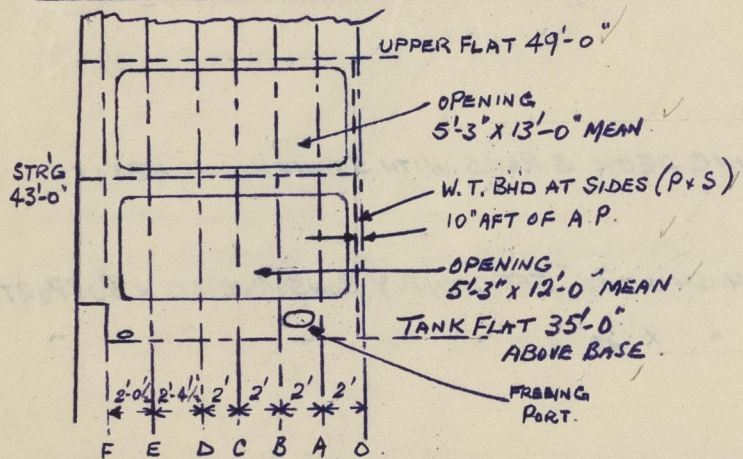 UPPER FLAT 49'-0"
OPENING
5'-3" X 13'-0" MEAN
STR'G
43'-0"
W.T. BHD AT SIDES (P & S)
10" AFT OF A.P.
OPENING
5'-3" X 12'-0" MEAN
TANK FLAT 35'-0"
ABOVE BASE
FREEING
PORT.
2'-0½" 2'-4½" 2' 2' 2' 2'
F E D C B A O